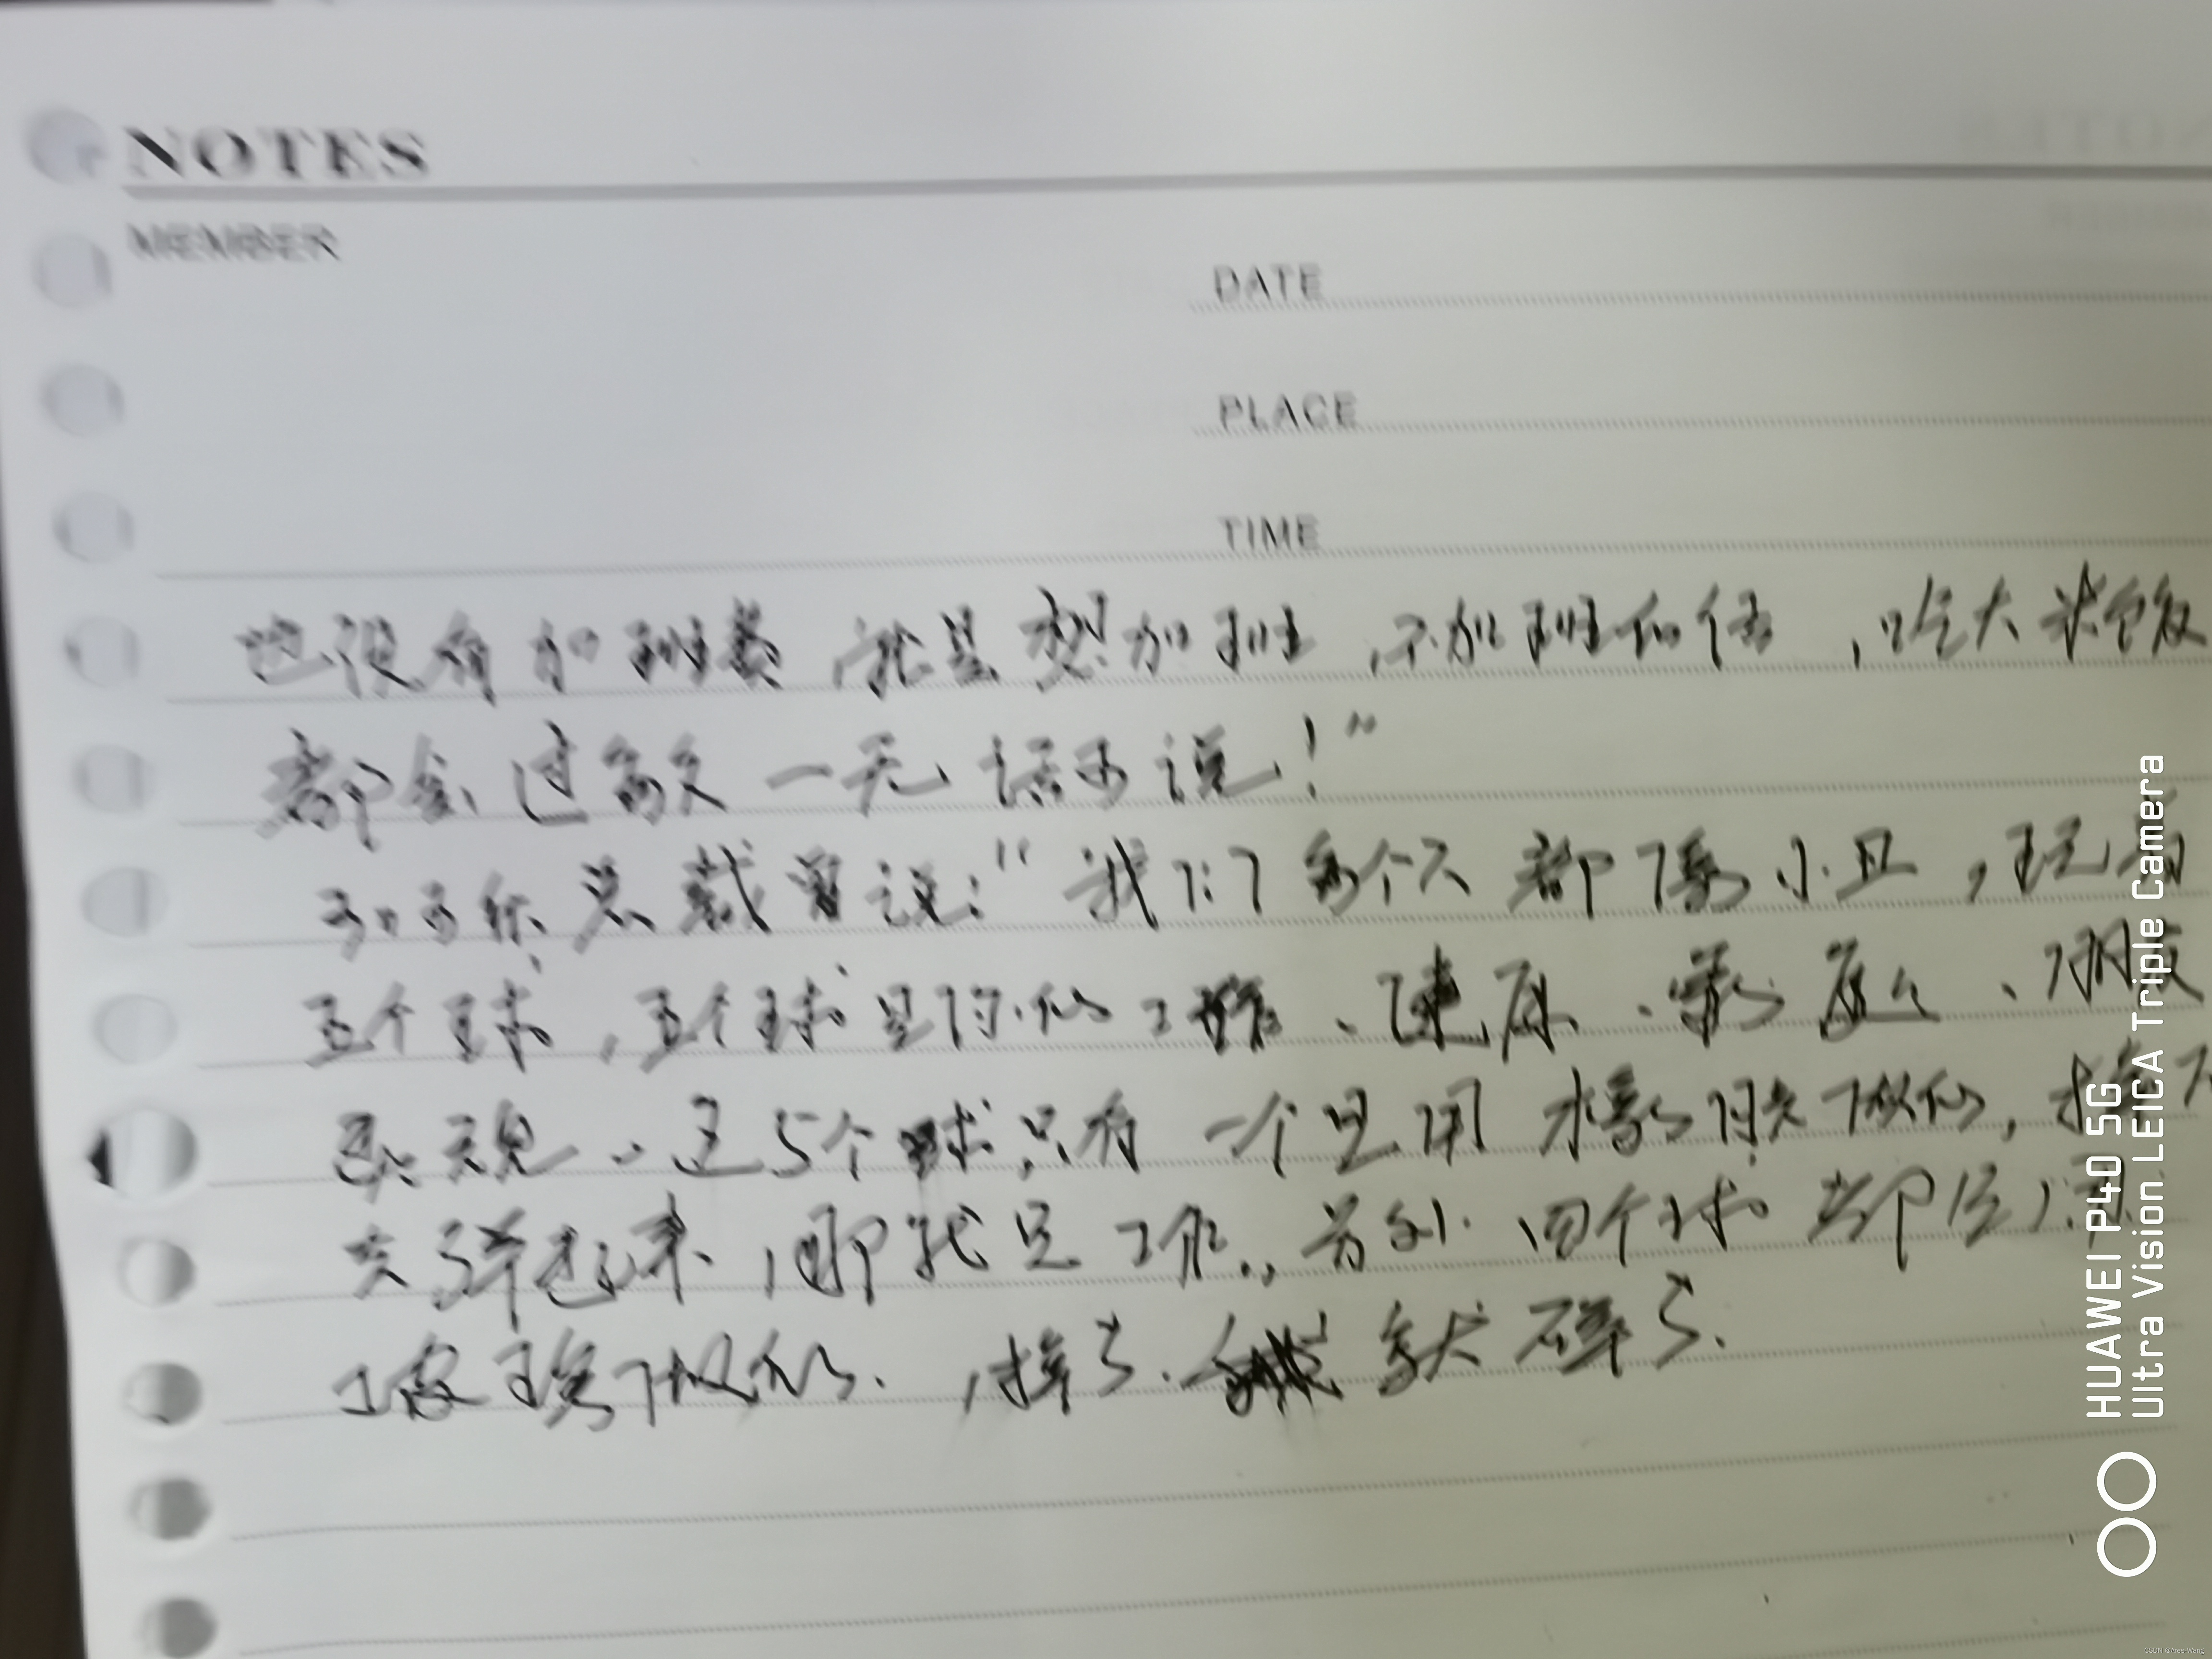 NOTES
MEMBER
DATE
PLACE
TIME
也没有加班费,就是想加班,不加班的话,吃大米饭
都会过敏一无话可说!”
可口可乐总裁曾说:“我们每个人都像小丑,玩着
五个球,五个球是你的工作、健康、家庭、朋友
灵魂,这5个球只有一个是用橡胶做的,掉下
去弹起来,那就是工作,另外四个球都是
玻璃做的,掉了就碎了.
HUAWEI P40 5G
Ultra Vision LEICA Triple Camera
CSDN @Ares-Wang